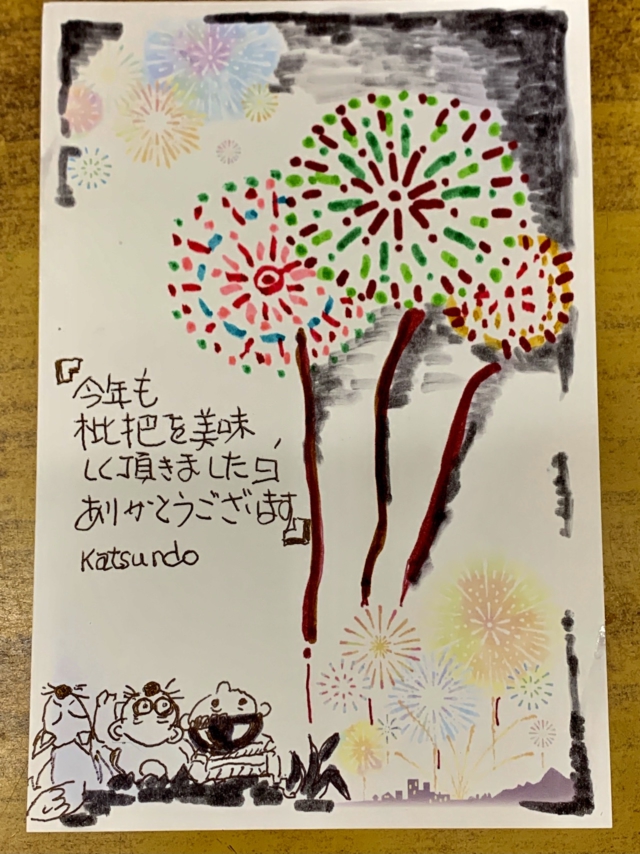 『今年も
枇杷を美味
しく頂きました。
ありがとうございます』
Katsundo